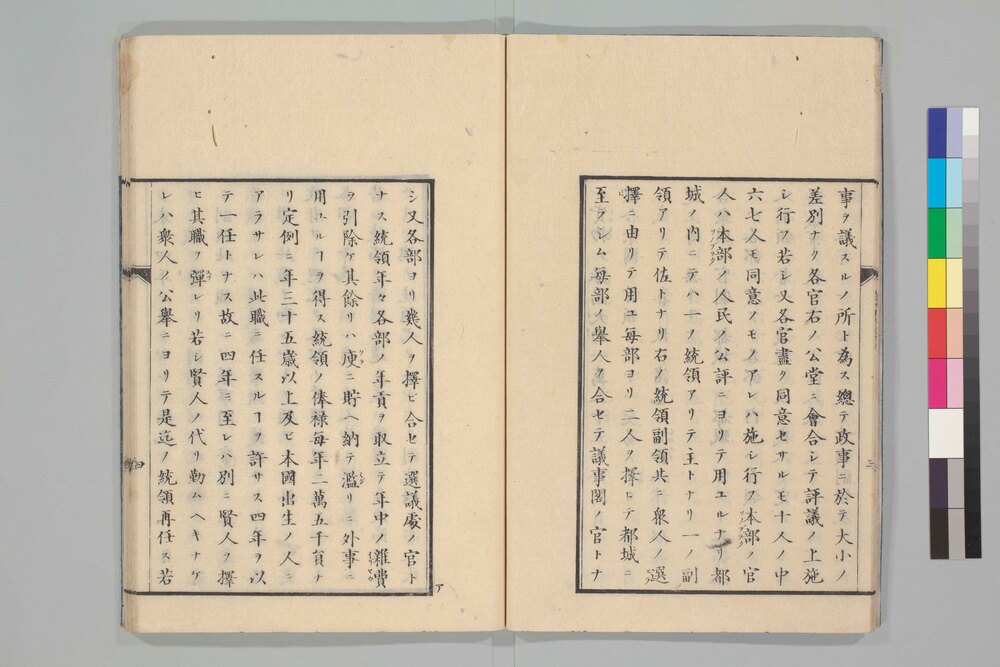 事ヲ議スルノ所ト為ス總テ政事ニ於テ大小ノ
差別ナク各官右ノ公堂ニ會合シテ評議ノ上施
シ行フ若シ又各官盡ク同意セサルモ十人ノ中
六七人モ同意ノモノアレハ施シ行フ本部ノ官
人ハ本部ノ人民ノ公評ニヨリテ用ユルナリ都
城ノ内ニテハ一ノ統領アリテ主トナリ一ノ副
領アリテ佐トナリ右ノ統領副領共ニ衆人ノ選
擇ニ由リテ用ユ毎部ヨリ二人ヲ擇ヒテ都城ニ
至ラシム毎部ノ舉人ヲ合セテ議事閣ノ官トナ
シ又各部ヨリ幾人ヲ擇ビ合セテ選議處ノ官ト
ナス統領年々各部ノ年貢ヲ取立テ年中ノ雜費
ヲ引除ケ其餘リハ庫ニ貯ヘ納テ濫リニ外事ニ
用ユルヿヲ得ス統領ノ俸禄毎年二萬五千員ナ
リ定例ニ年三十五歳以上及ビ本國出生ノ人ニ
アラサレハ此職ニ任スルヿヲ許サス四年ヲ以
テ一任トナス故ニ四年ニ至レハ別ニ賢人ヲ擇
ヒ其職ヲ彈レリ若シ賢人ノ代リ勤ムヘキナケ
レハ衆人ノ公舉ニヨリテ是迄ノ統領再任ス若
三
四